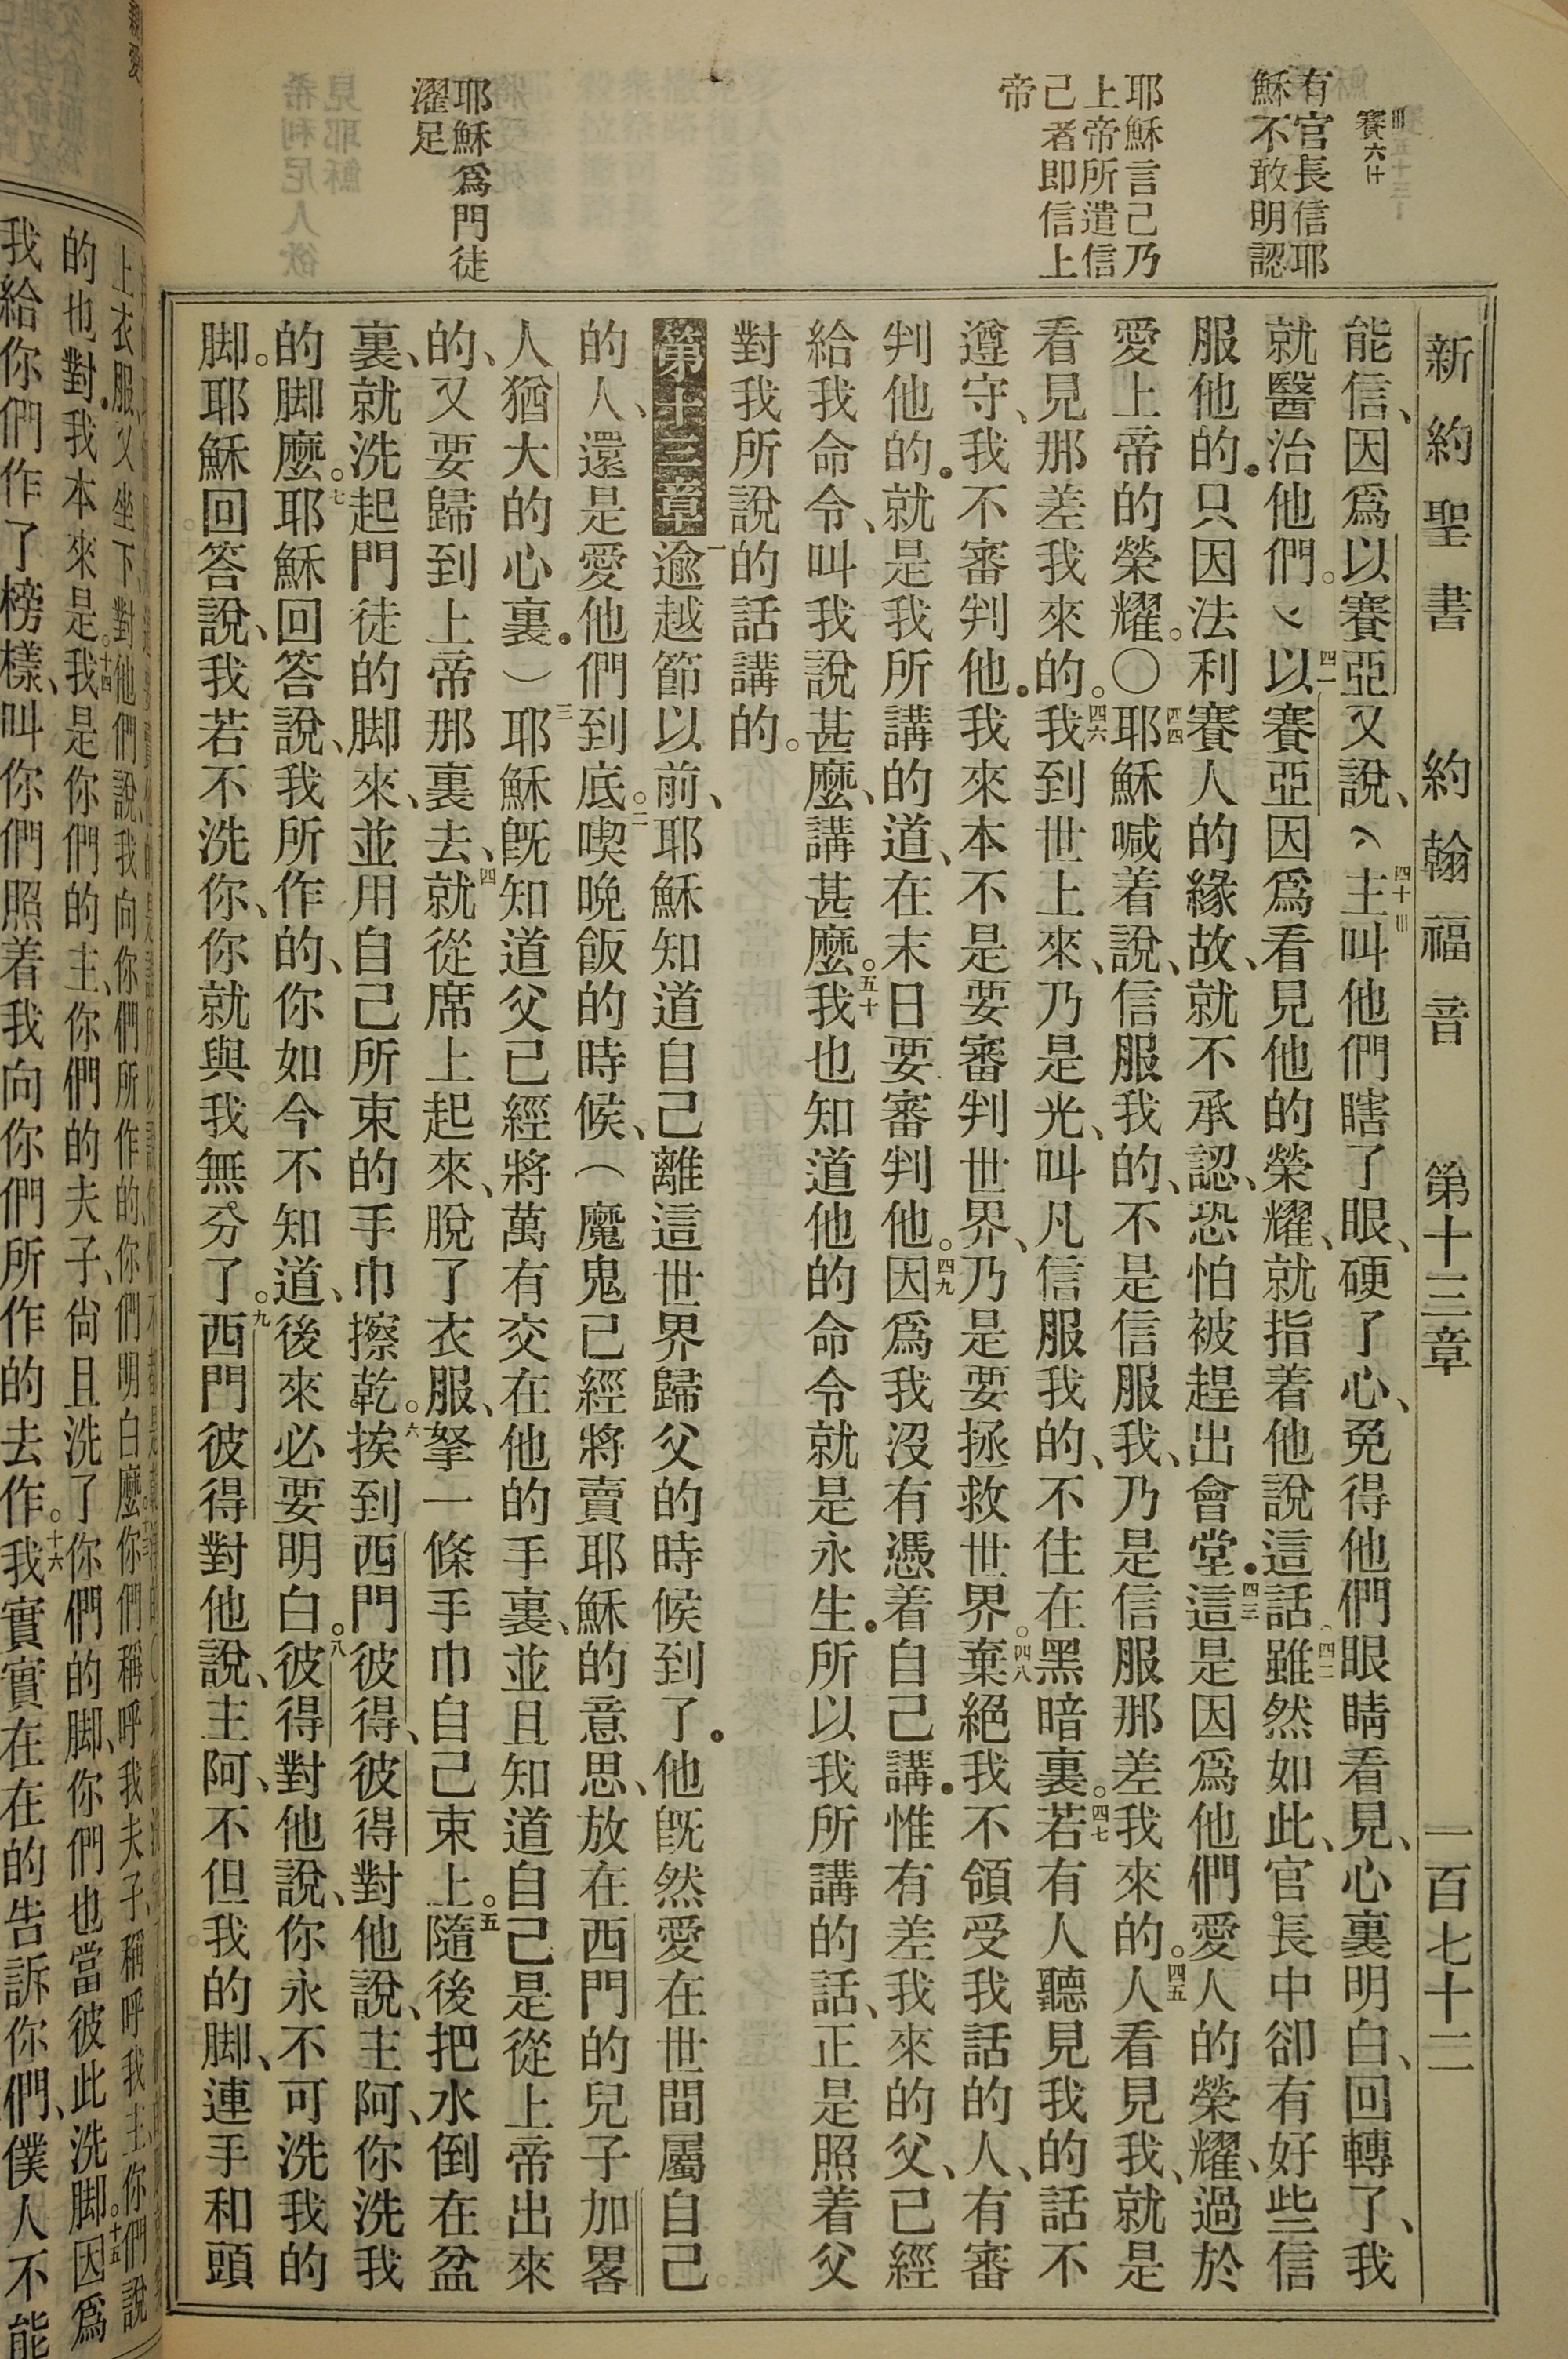 新約聖書 約翰福音 第十三章 一百七十二
賽六十
有官長信耶
穌不敢明認
耶穌言己乃
上帝所遣信
己者即信上
帝
耶穌爲門徒
濯足
能信、因爲以賽亞又說、(四十主叫他們瞎了眼、硬了心、免得他們眼睛看見、心裏明白、回轉了、我
就醫治他們。)四一以賽亞因爲看見他的榮耀、就指着他說這話四二雖然如此、官長中卻有好些信
服他的。只因法利賽人的緣故、就不承認、恐怕被趕出會堂。四三這是因爲他們愛人的榮耀、過於
愛上帝的榮耀。○四四耶穌喊着說、信服我的、不是信服我、乃是信服那差我來的。四五人看見我、就是
看見那差我來的。四六我到世上來、乃是光、叫凡信服我的、不住在黑暗裏。四七若有人聽見我的話不
遵守、我不審判他。我來本不是要審判世界、乃是要拯救世界。四八棄絕我不領受我話的人、有審
判他的。就是我所講的道、在末日要審判他。四九因爲我沒有憑着自己講。惟有差我來的父、已經
給我命令、叫我說甚麼、講甚麼。五十我也知道他的命令就是永生。所以我所講的話、正是照着父
對我所說的話講的。
第十三章 一逾越節以前、耶穌知道自己離這世界歸父的時候到了。他旣然愛在世間屬自己
的人、還是愛他們到底。二喫晚飯的時候、(魔鬼已經將賣耶穌的意思、放在西門的兒子加畧
人猶大的心裏。)三耶穌旣知道父已經將萬有交在他的手裏、並且知道自己是從上帝出來
的、又要歸到上帝那裏去、四就從席上起來、脫了衣服、拏一條手巾自己束上。五隨後把水倒在盆
裏、就洗起門徒的脚來、並用自己所束的手巾擦乾。六挨到西門彼得、彼得對他說、主阿、你洗我
的脚麼。七耶穌回答說、我所作的、你如今不知道、後來必要明白。八彼得對他說、你永不可洗我的
脚。耶穌回答說、我若不洗你、你就與我無分了。九西門彼得對他說、主阿、不但我的脚、連手和頭
上衣服、又坐下、對他們說、我向你們所作的、你們明白麼你們稱呼我夫子、稱呼我主、你們說
的也對。我本來是。十四我是你們的主、你們的夫子、尙且洗了你們的脚、你們也當彼此洗脚。十五因爲
我給你們作了榜樣、叫你們照着我向你們所作的去作。十六我實實在在的告訴你們、僕人不能